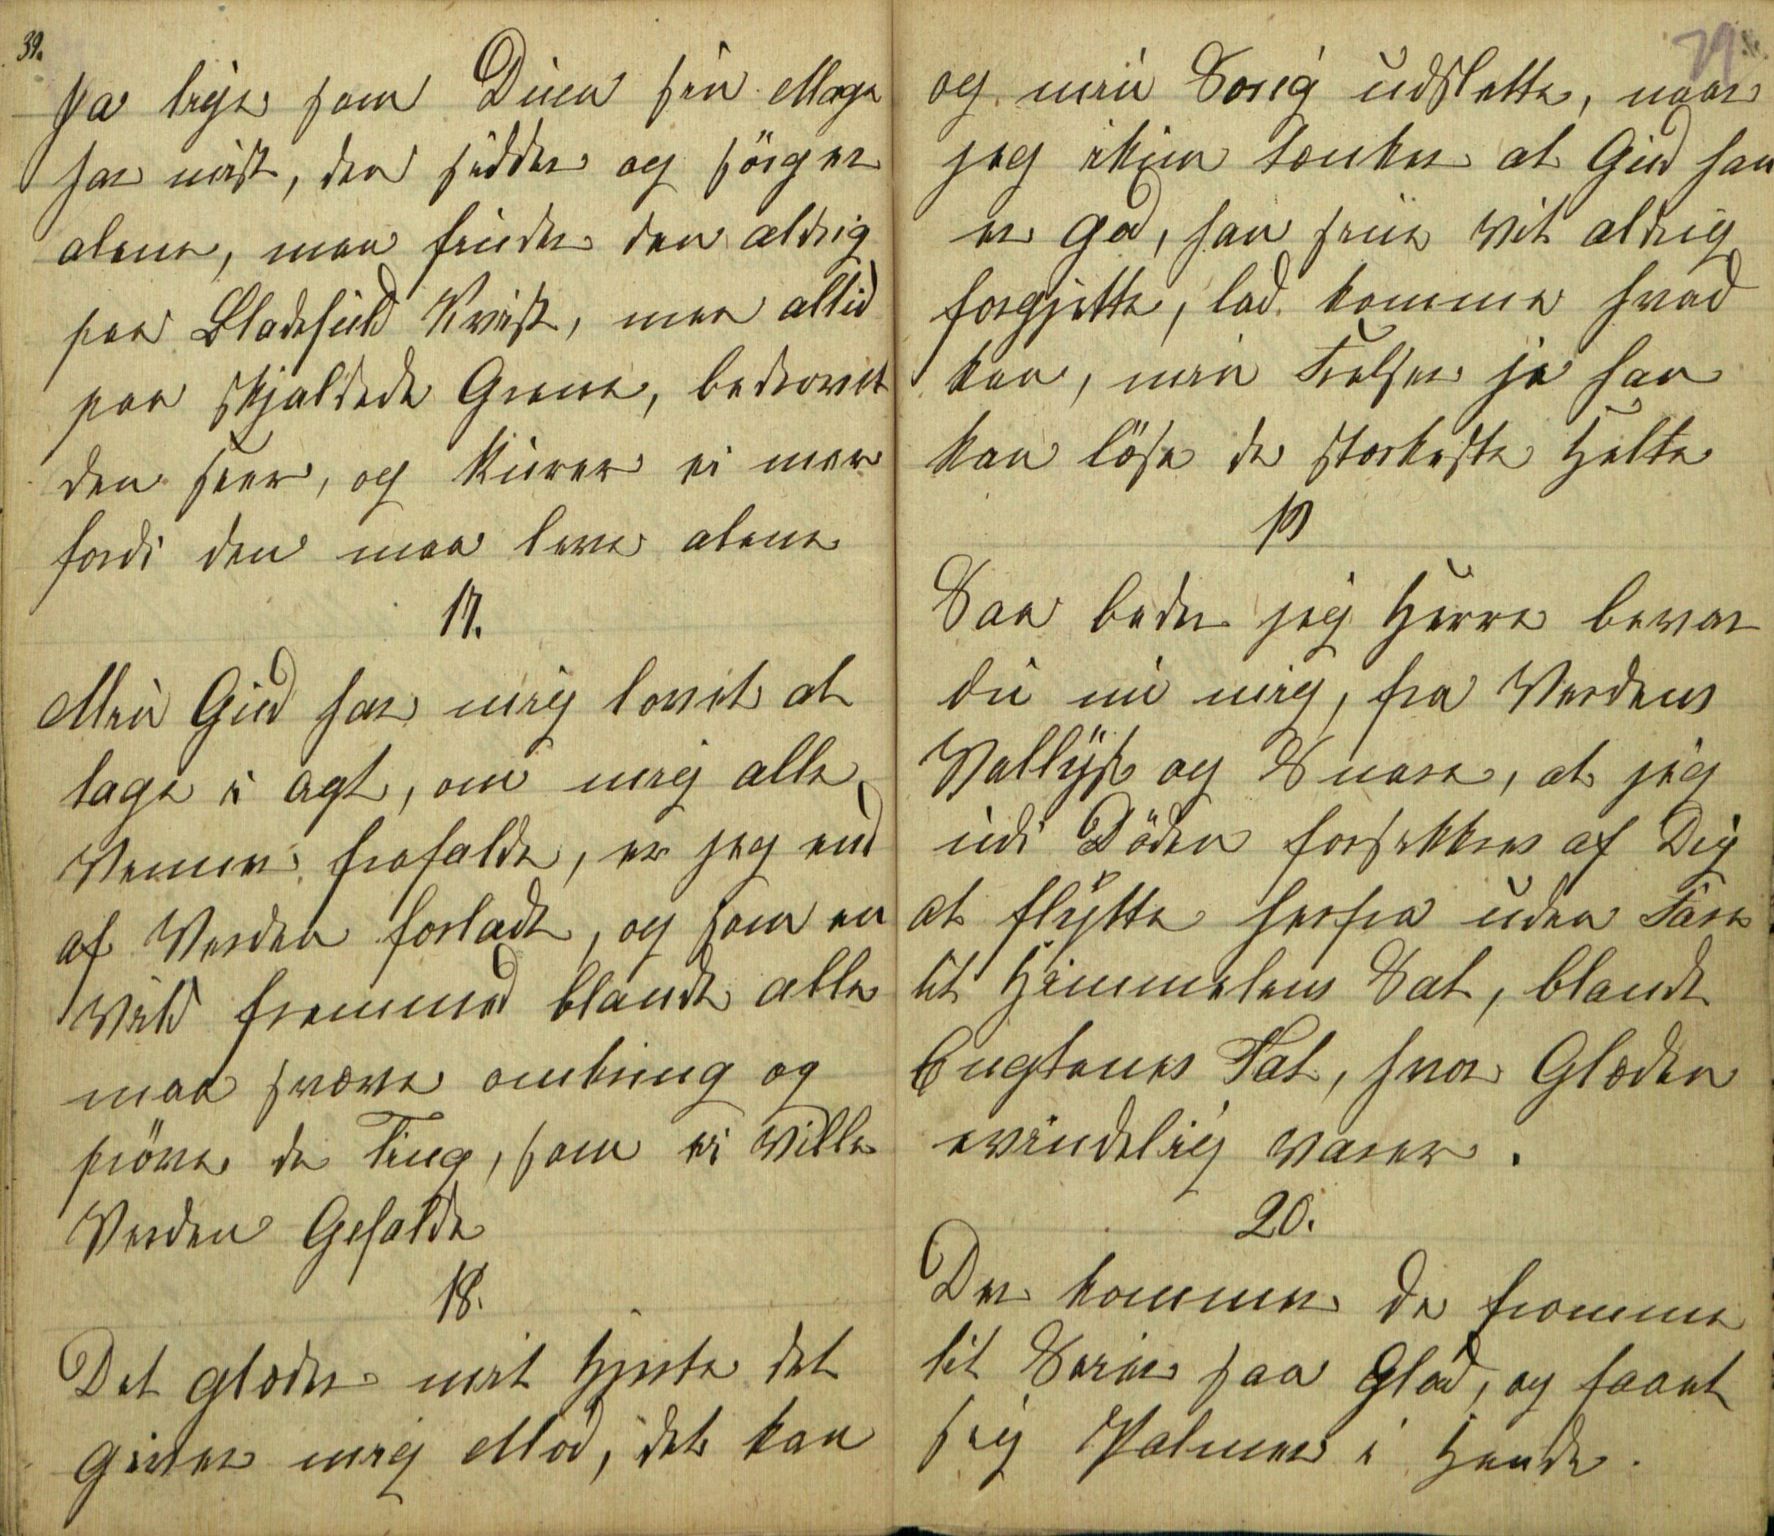 39.
ja lige som Duen sin Mage
har mist, den sidder og sörger
alene, man finder den aldrig
paa Bladefuld Kvist, men altid
paa skjaldede Grene, bedrovet
den seer, og kurer ei mer
fordi den maa leve alene
17.
Min Gud har mig lovet at
tage i agt, om mig alle
Venner frafalde, er jeg end
af Verden forladt, og som en
Vild fremmed blandt alle
maa sværve omkring og
pröve de Ting, som ei Ville
Verden Gefalde
18.
Det glæder mit Hjerte det
giver mig Mod, det kan
79
og min Sorig udslette, naar
jeg ikun tænker at Gud han
er god, han sine Vil aldrig
forgjette, lad komme hvad
kan, min Frelser ja han
kan löse de starkeste Helte
19
Saa beder jeg Herre bevar
du nu mig, fra Verdens
Vellÿst og Snare, at jeg
udi Döden forsikkres af Dig
at flÿtte herfra uden Fare
til Himmelens Sal, blandt
Englenes Tal, hvor Glæden
evindelig varer.
20.
Der kommer de fromme
til Seier saa Glad, og faaet
sig Palmer i Hænde.